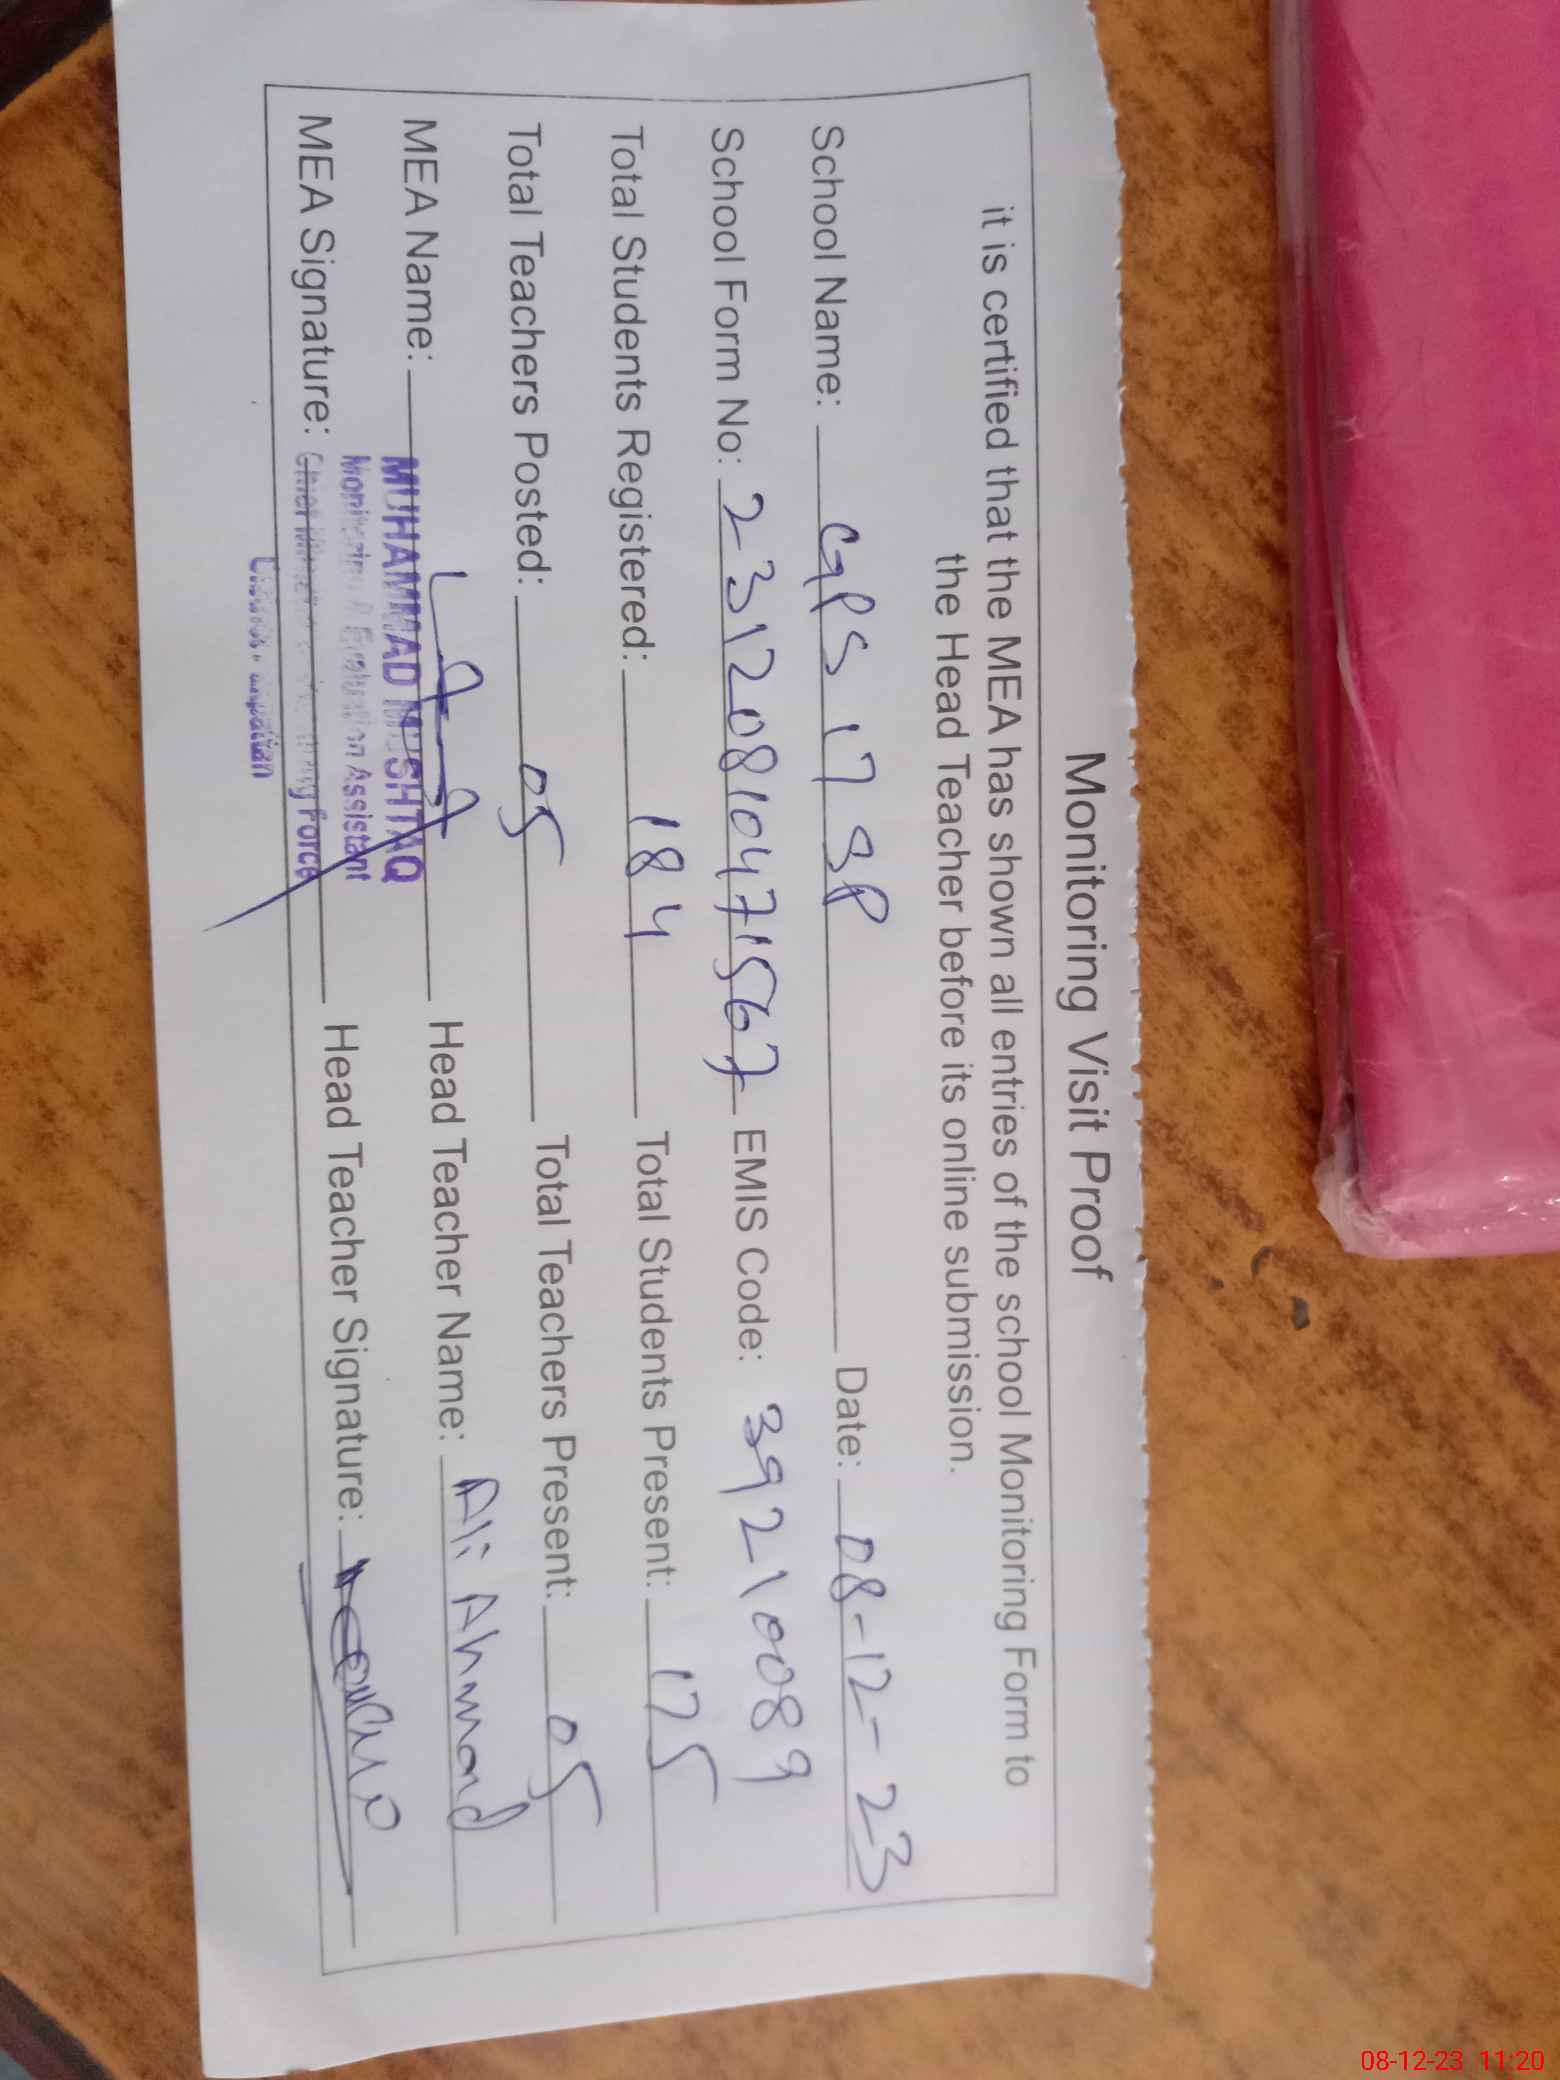 Monitoring Visit Proof
it is certified that the MEA has shown all entries of the school Monitoring Form to
the Head Teacher before its online submission.
School Name: GPS 17 SP Date: 08-12-23
School Form No: 23120810471567 EMIS Code: 39210089
Total Students Registered: 184 Total Students Present: 175
Total Teachers Posted: 05 Total Teachers Present: 05
MEA Name: MUHAMMAD MUSHTAQ Head Teacher Name: Ali Ahmad
Monitoring & Evaluation Assistant
MEA Signature: Chief Minister Monitoring Force Head Teacher Signature:
08-12-23 11:20